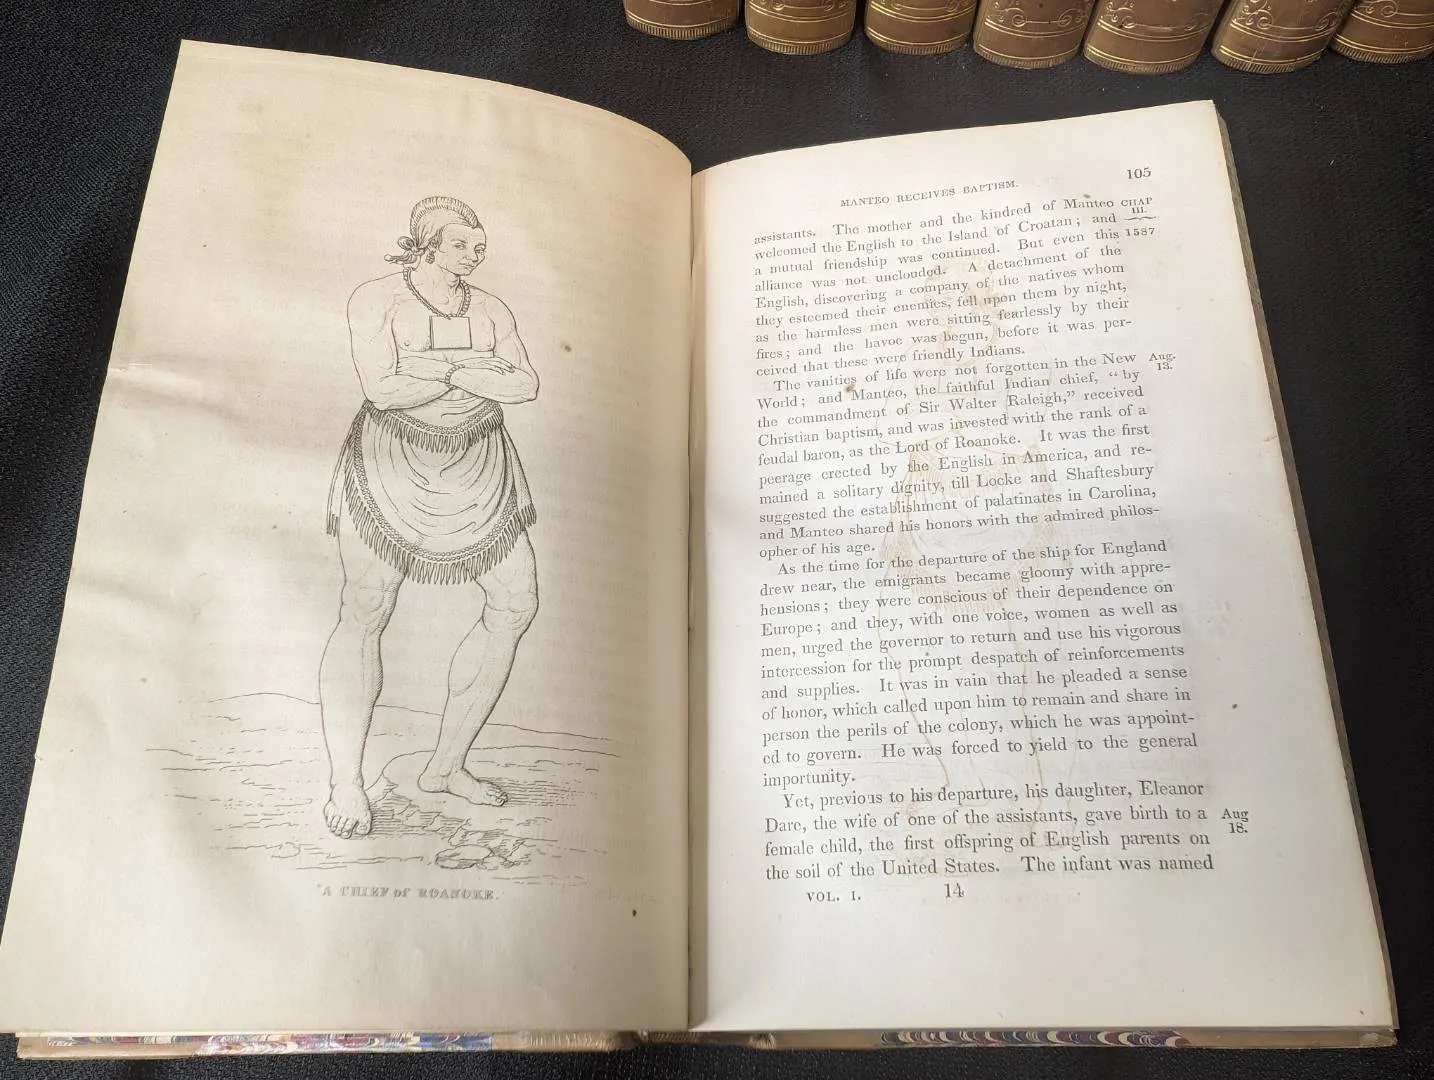 A CHIEF of ROANOKE.
MANTEO RECEIVES BAPTISM. 105
assistants. The mother and the kindred of Manteo CHAP
welcomed the English to the Island of Croatan; and III.
a mutual friendship was continued. But even this 1587
alliance was not unclouded. A detachment of the
English, discovering a company of the natives whom
they esteemed their enemies, fell upon them by night,
as the harmless men were sitting fearlessly by their
fires; and the havoc was begun, before it was per-
ceived that these were friendly Indians.
The vanities of life were not forgotten in the New Aug.
World; and Manteo, the faithful Indian chief, "by 13.
the commandment of Sir Walter Raleigh," received
Christian baptism, and was invested with the rank of a
feudal baron, as the Lord of Roanoke. It was the first
peerage erected by the English in America, and re-
mained a solitary dignity, till Locke and Shaftesbury
suggested the establishment of palatinates in Carolina,
and Manteo shared his honors with the admired philos-
opher of his age.
As the time for the departure of the ship for England
drew near, the emigrants became gloomy with appre-
hensions; they were conscious of their dependence on
Europe; and they, with one voice, women as well as
men, urged the governor to return and use his vigorous
intercession for the prompt despatch of reinforcements
and supplies. It was in vain that he pleaded a sense
of honor, which called upon him to remain and share in
person the perils of the colony, which he was appoint-
ed to govern. He was forced to yield to the general
importunity.
Yet, previous to his departure, his daughter, Eleanor
Dare, the wife of one of the assistants, gave birth to a Aug
female child, the first offspring of English parents on 18.
the soil of the United States. The infant was named
VOL. I. 14